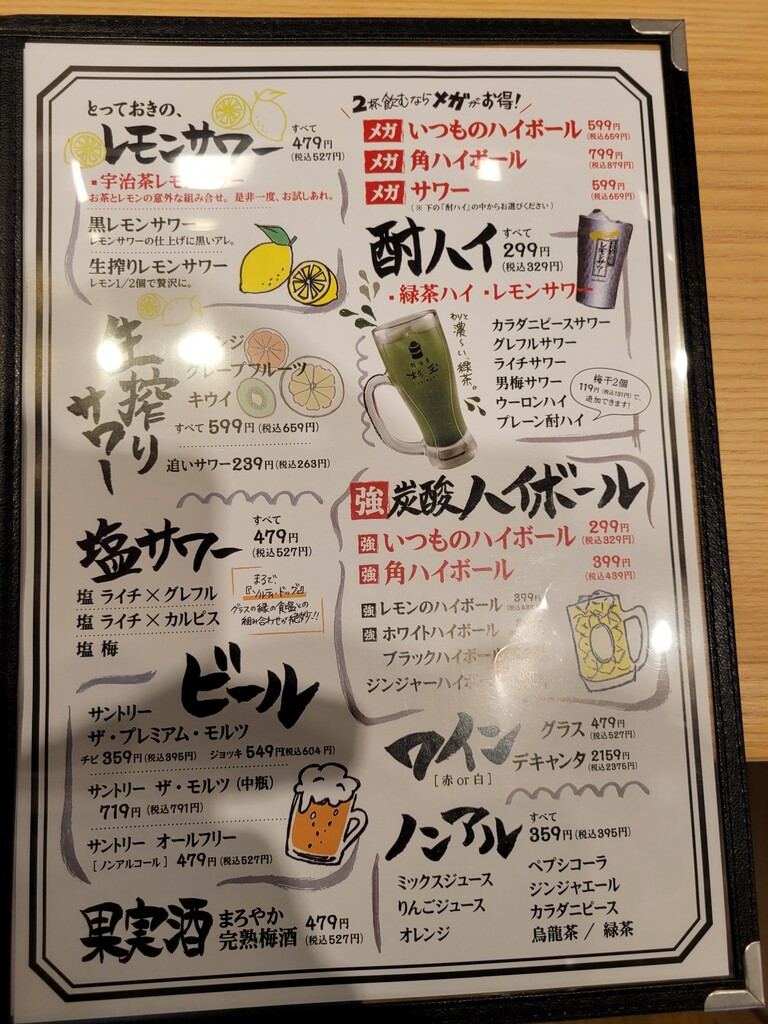 とっておきの、
レモンサワー
すべて
479円
(税込527円)
・宇治茶レモン
お茶とレモンの意外な組み合せ。是非一度、お試しあれ。
黒レモンサワー
レモンサワーの仕上げに黒いアレ。
生搾りレモンサワー
レモン1/2個で贅沢に。
生搾り
サワー
グレープフルーツ
キウイ
すべて 599円(税込659円)
追いサワー239円(税込263円)
塩サワー
すべて
479円
(税込527円)
塩 ライチ×グレフル
塩 ライチ×カルピス
塩 梅
まるで、
『ソルティ・ドッグ』
グラスの縁の食塩との
組み合わせが絶妙!!
ビール
サントリー
ザ・プレミアム・モルツ
チビ 359円(税込395円) ジョッキ 549円(税込604円)
サントリー ザ・モルツ(中瓶)
719円(税込791円)
サントリー オールフリー
[ノンアルコール] 479円(税込527円)
果実酒
まろやか
完熟梅酒
479円
(税込527円)
2杯飲むならメガがお得!
メガ いつものハイボール 599円
(税込659円)
メガ 角ハイボール 799円
(税込879円)
メガ サワー 599円
(税込659円)
(※下の『酎ハイ』の中からお選びください)
酎ハイ
すべて
299円
(税込329円)
・緑茶ハイ ・レモンサワー
レモンサワー
わりと
濃〜い、緑茶。
杉玉
カラダニピースサワー
グレフルサワー
ライチサワー
男梅サワー
ウーロンハイ
プレーン酎ハイ
梅干2個
119円(税込131円)で、
追加できます!
強炭酸ハイボール
強 いつものハイボール 299円
(税込329円)
強 角ハイボール 399円
(税込439円)
強 レモンのハイボール 399円
強 ホワイトハイボール
ブラックハイボール
ジンジャーハイ
ワイン
[赤or白]
グラス 479円
(税込527円)
デキャンタ 2159円
(税込2375円)
ノンアル
すべて
359円(税込395円)
ミックスジュース
りんごジュース
オレンジ
ペプシコーラ
ジンジャエール
カラダニピース
烏龍茶 / 緑茶